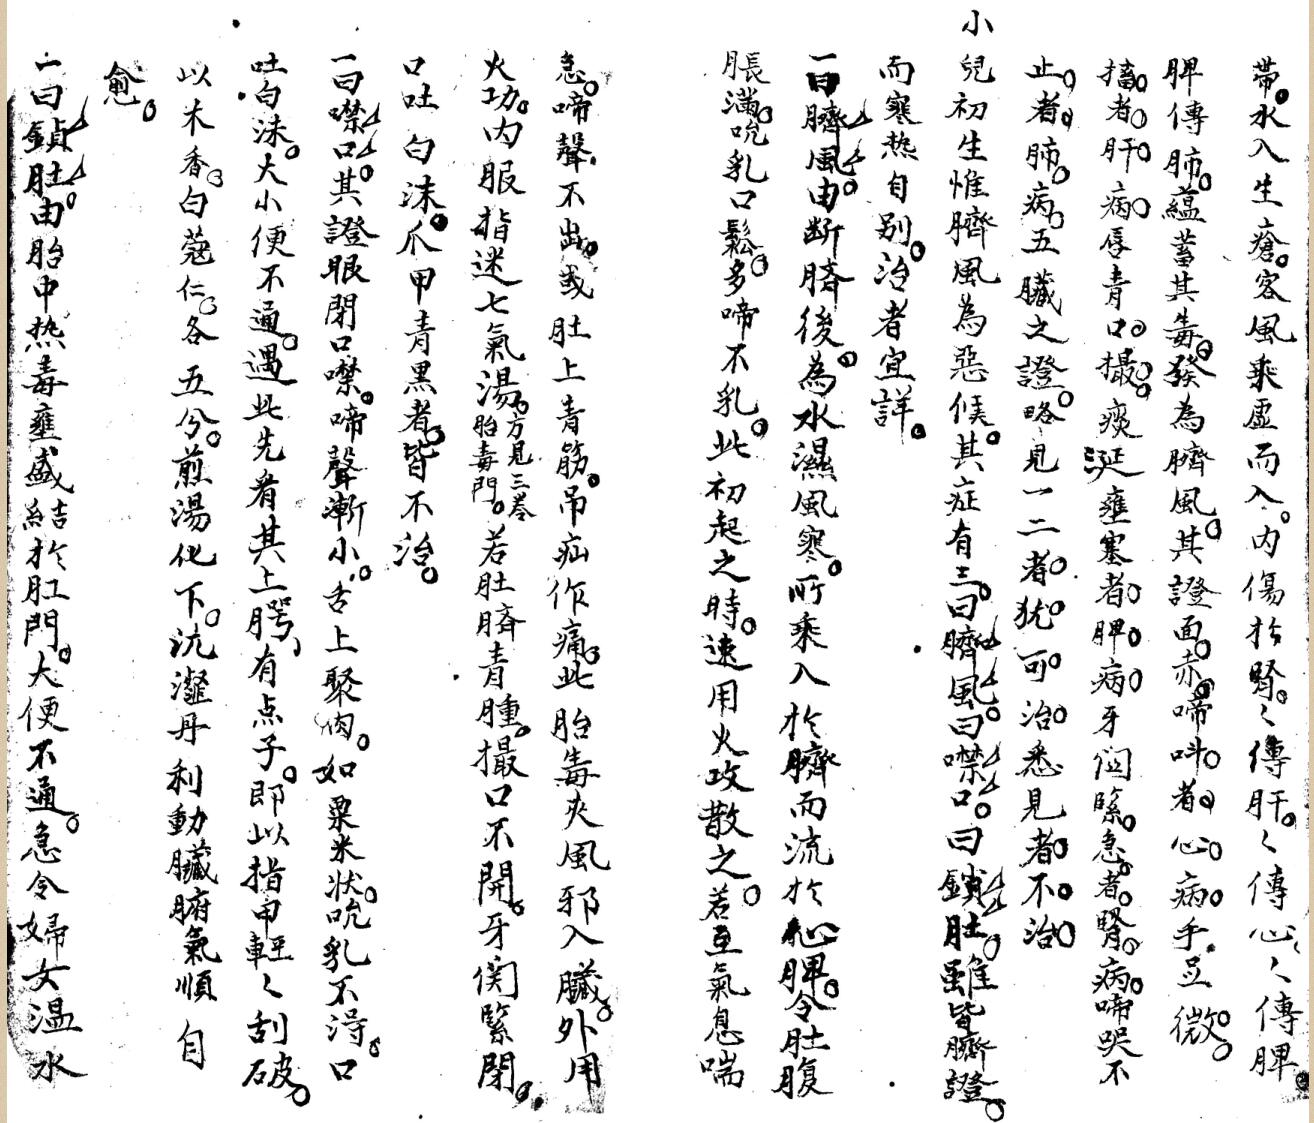 帶水入生瘡客風乘虛而入內傷於腎〻傳肝〻傳心〻傳脾
脾傳肺蘊蓄其毒發為臍風其證面赤啼呌者心病手足微
搐者肝病唇青口撮痰涎壅塞者脾病牙関緊急者腎病啼哭不
止者肺病五臟之證略見一二者犹可治悉見者不治
小兒初生惟臍風為惡候其症有三曰臍風曰噤口曰鎖肚雖皆臍證
而寒热自別治者宜詳
一曰臍風由断臍後為水濕風寒所乘入於臍而流於心脾令肚腹
脹滿吮乳口鬆多啼不乳此初起之時速用火攻散之若至氣息喘
急啼聲不出或肚上青筋吊疝作痛此胎毒夾風邪入臟外用
火功内服指迷七氣湯方見三卷胎毒門若肚臍青腫撮口不開牙関緊閉
口吐白沫爪甲青黑者皆不治
一曰噤口其證眼閉口噤啼聲漸小舌上聚肉如粟米狀吮乳不得口
吐白沫大小便不通遇此先看其上腭有点子即以指甲輕〻刮破
以木香白蔻仁各五分煎湯化下沆瀣丹利動臟腑氣順自
愈
一曰鎖肚由胎中热毒壅盛結於肛門大便不通急令婦女温水